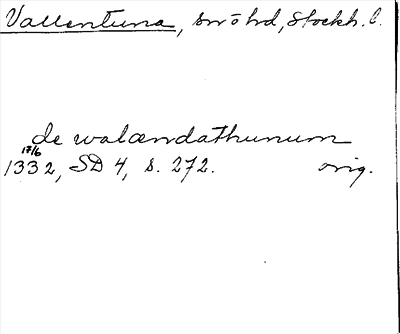 Vallentuna, snö hd, Stockh. l.
de walændathunum
17/6
1332, SD 4, s. 272. orig.